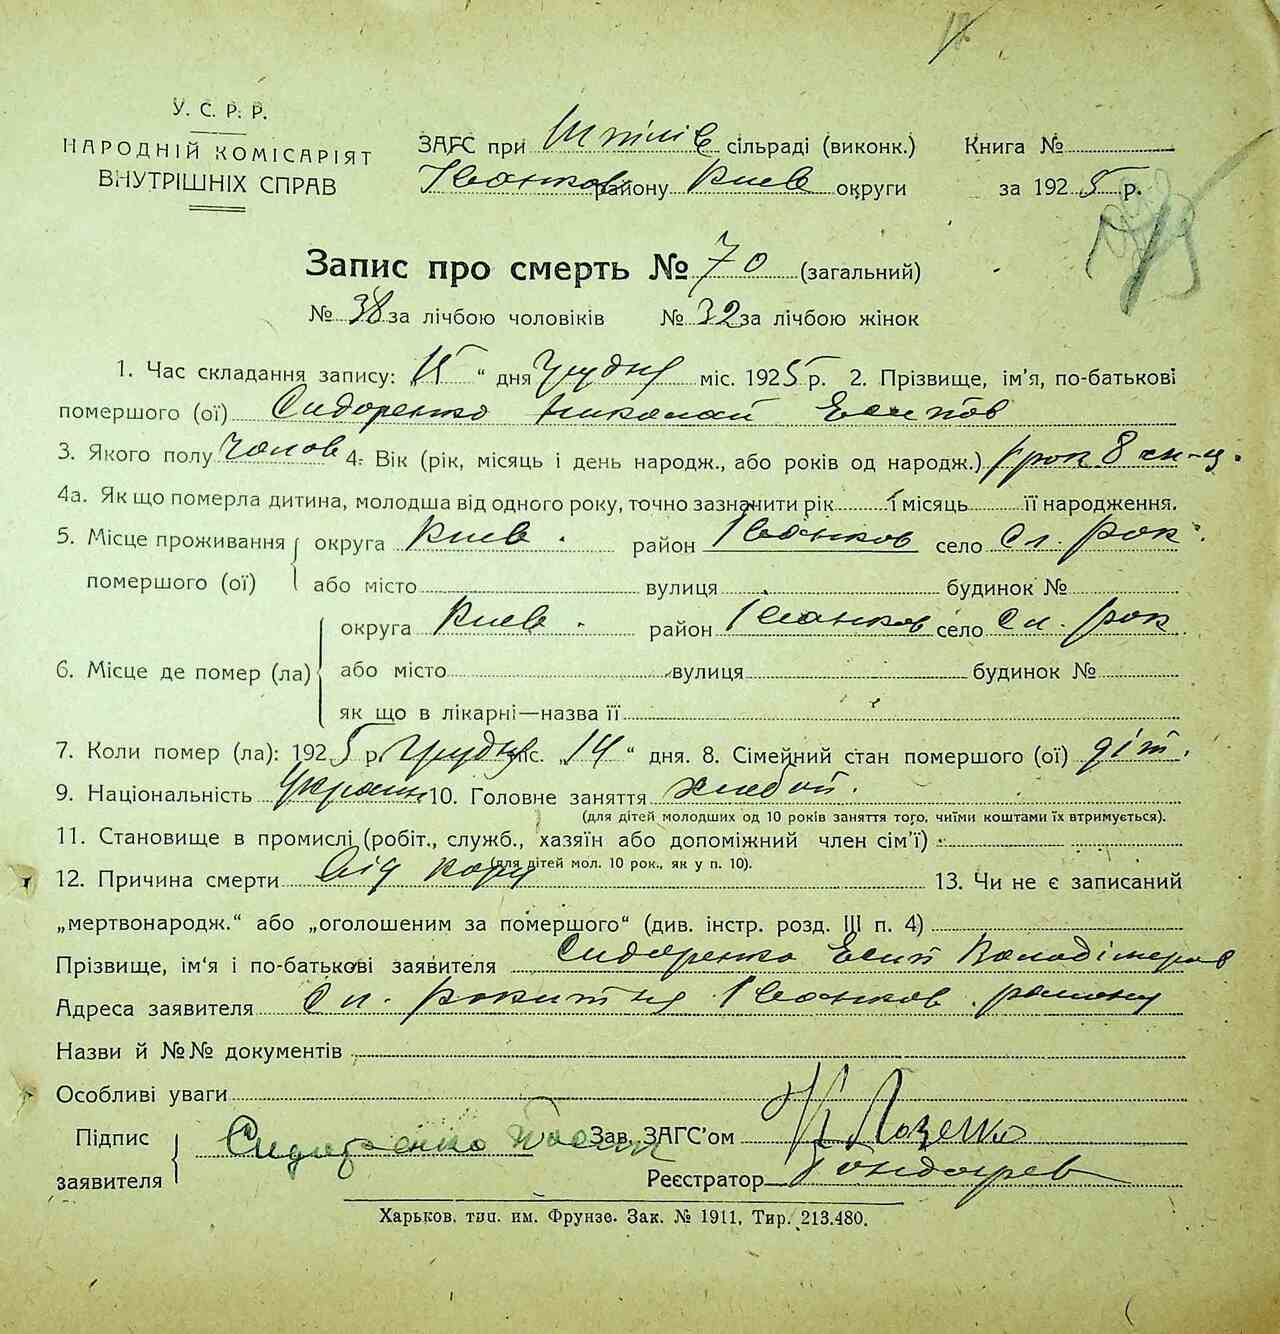 У. С. Р. Р.
НАРОДНІЙ КОМІСАРІЯТ
ВНУТРІШНІХ СПРАВ
ЗАГС при сільраді (виконк.) Книга №
Іванков району Киев округи за 1925 р.
Запис про смерть № 70 (загальний)
№ 38 за лічбою чоловіків № 32 за лічбою жінок
1. Час складання запису: „15“ дня Грудня міс. 1925 р. 2. Прізвище, ім'я, по-батькові
помершого (ої) Сидоренко Николай Есипов
3. Якого полу Чолов 4. Вік (рік, місяць і день народж., або років од народж.) 1 рок 8 м-ц.
4а. Як що померла дитина, молодша від одного року, точно зазначити рік і місяць її народження.
5. Місце проживання округа Киев. район Іванков село Сл. рок.
помершого (ої) або місто вулиця будинок №
округа Киев. район Іванков село Сл. рок.
6. Місце де помер (ла) або місто вулиця будинок №
як що в лікарні—назва її
7. Коли помер (ла): 1925 р. Грудня міс. „14“ дня. 8. Сімейний стан помершого (ої) діт.
9. Національність Украин 10. Головне заняття хлібой.
(для дітей молодших од 10 років заняття того, чиїми коштами їх втримується).
11. Становище в промислі (робіт., служб., хазяїн або допоміжний член сім'ї)
(для дітей мол. 10 рок., як у п. 10).
12. Причина смерти від кору 13. Чи не є записаний
„мертвонародж.“ або „оголошеним за помершого“ (див. інстр. розд. III п. 4)
Прізвище, ім'я і по-батькові заявителя Сидоренко Есип Володімеров
Адреса заявителя Сл. рокитня Іванков. району
Назви й №№ документів
Особливі уваги
Підпис Сидоренко Зав. ЗАГС'ом
заявителя Реєстратор
Харьков. тип. им. Фрунзе. Зак. № 1911, Тир. 213.480.